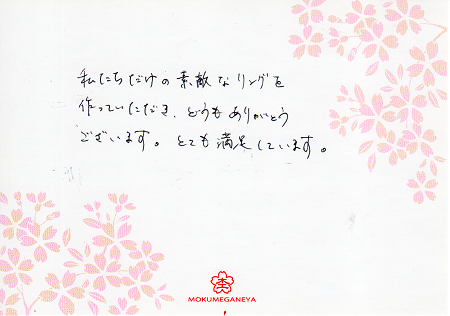 私たちだけの素敵なリングを
作っていただき、どうもありがとう
ございます。とても満足しています。
杢
MOKUMEGANEYA